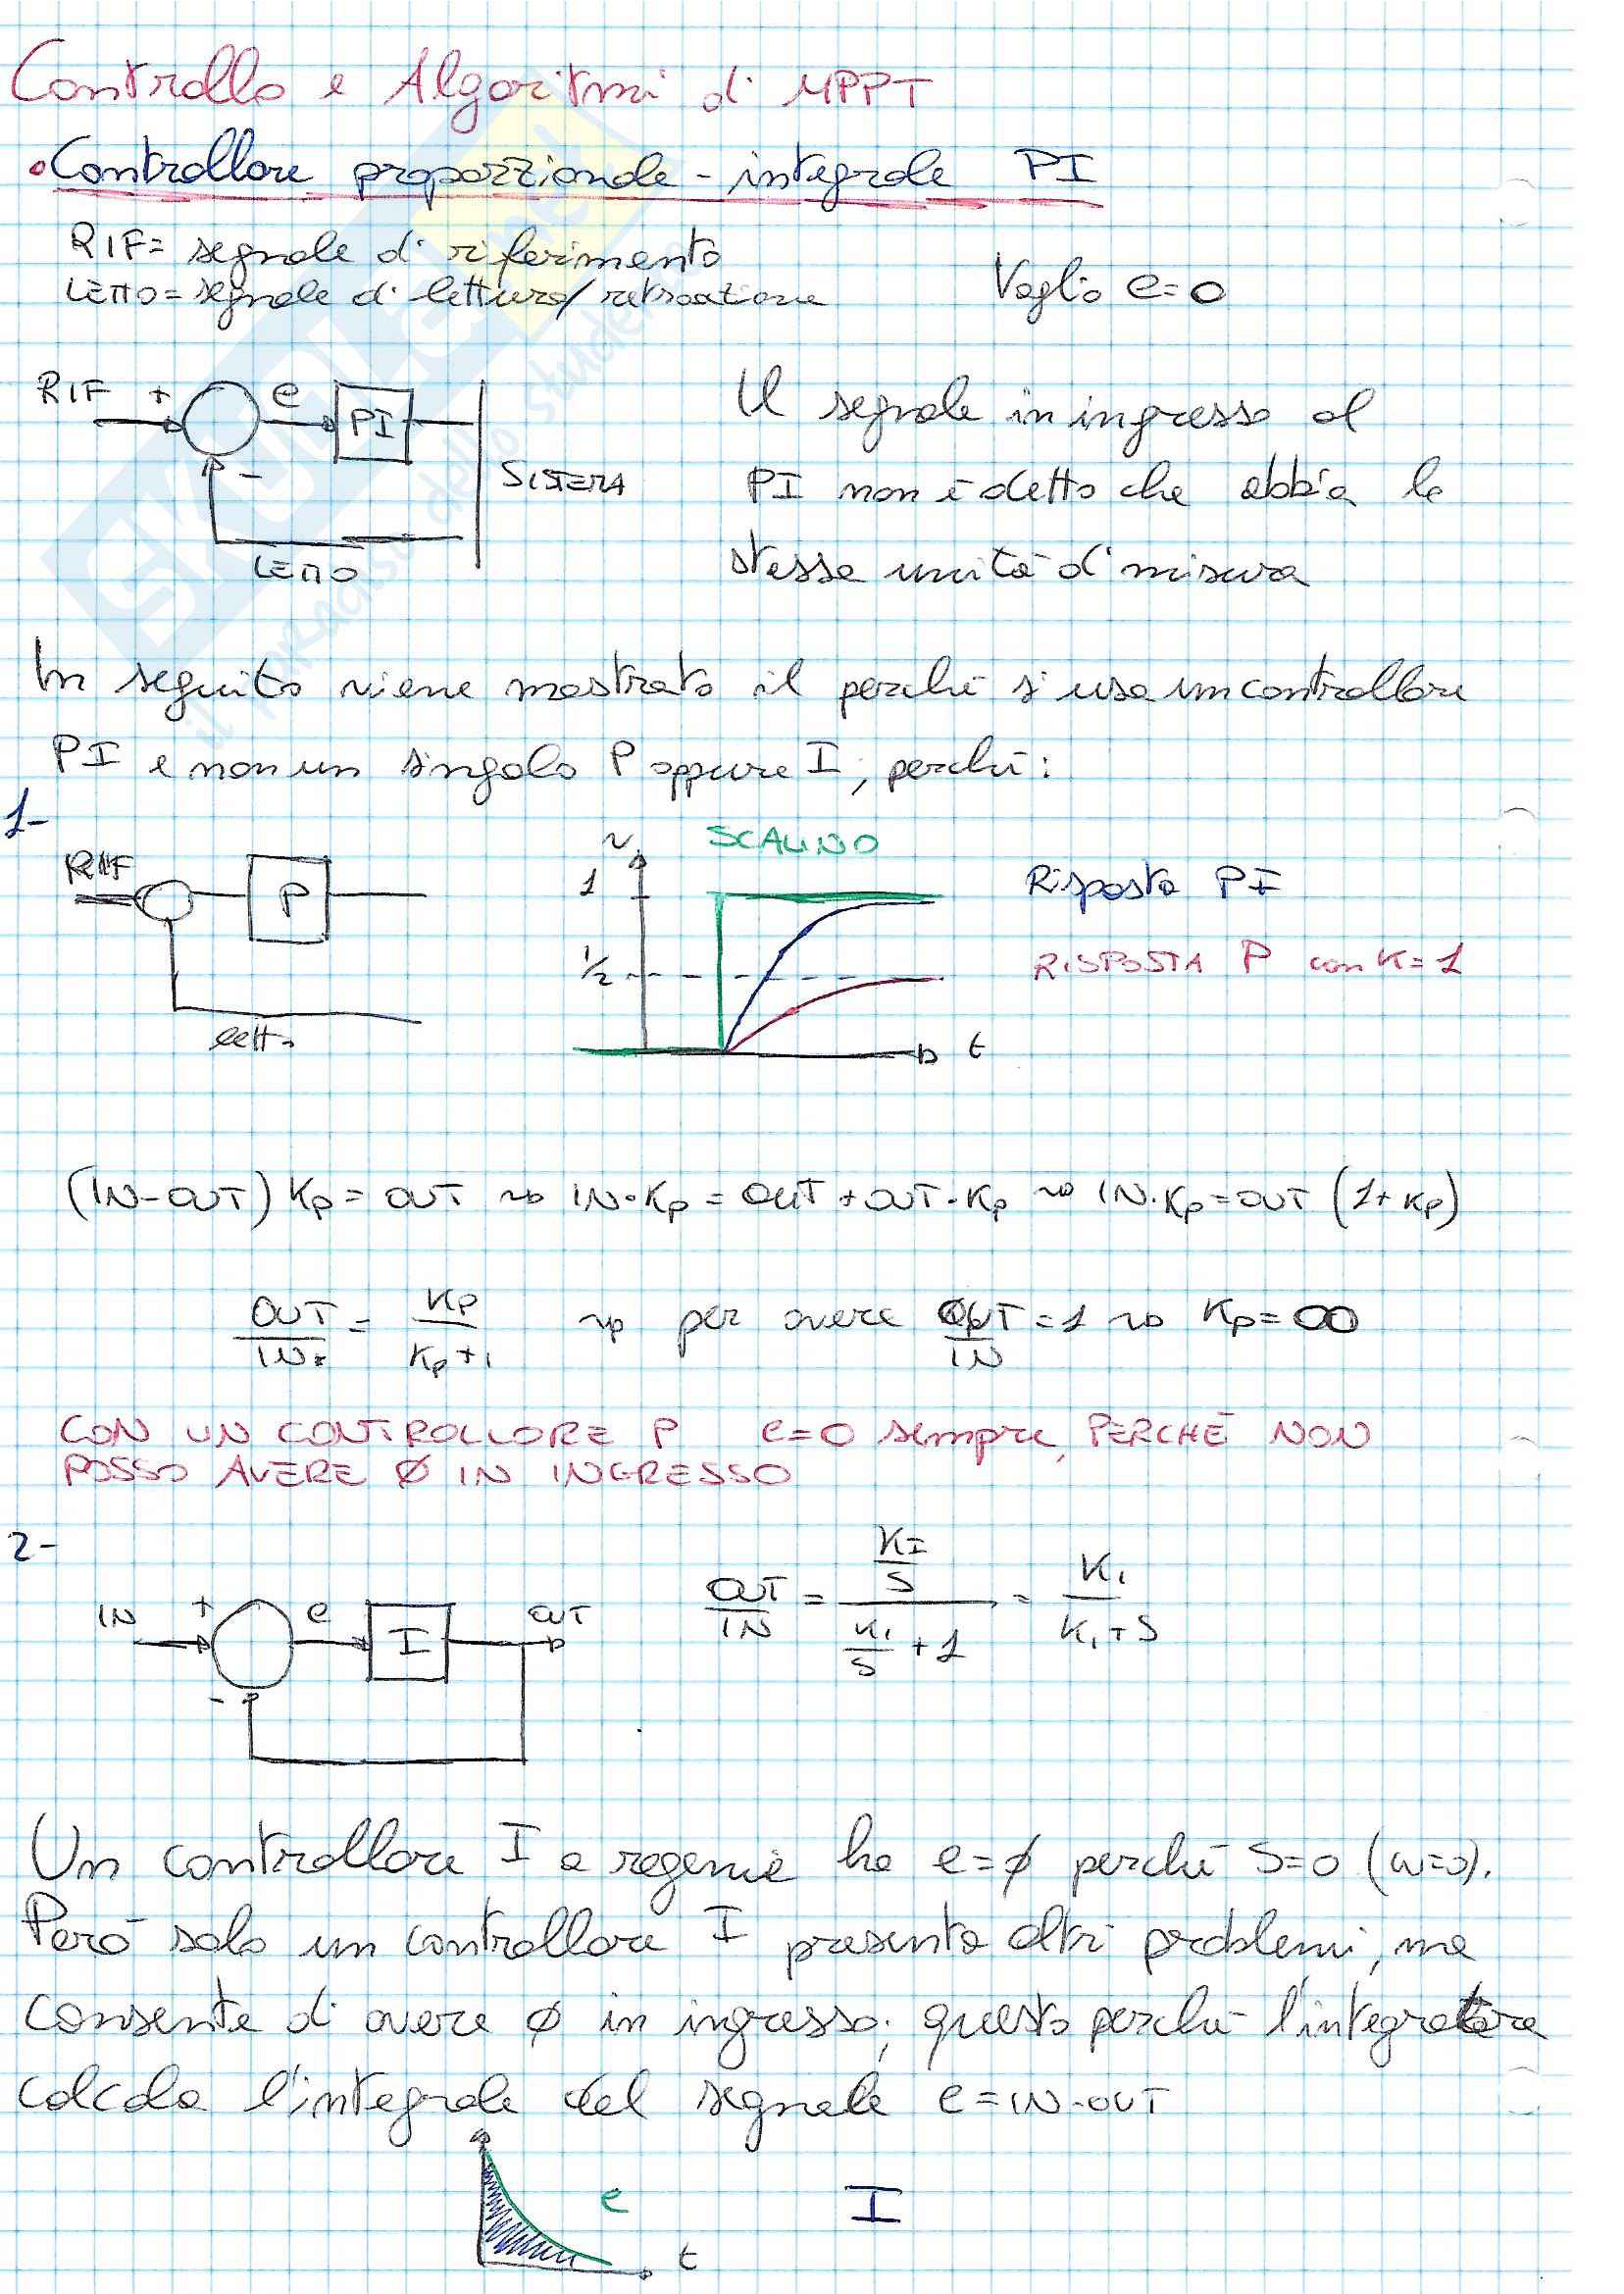 Controllo e Algoritmi di MPPT
• Controllore proporzionale - integrale PI
RIF = segnale di riferimento
LETTO = segnale di lettura/retroazione
Voglio e=0
RIF + e PI
-
SISTEMA
LETTO
Il segnale in ingresso al
PI non è detto che abbia la
stessa unità di misura
In seguito viene mostrato il perché si usa un controllore
PI e non un singolo P oppure I, perché:
1-
RIF
P
letto
SCALINO
1
1/2
t
Risposta PI
RISPOSTA P con K=1
(IN-OUT) Kp = OUT ⇝ IN·Kp = OUT + OUT·Kp ⇝ IN·Kp = OUT (1+Kp)
OUT/IN = Kp/(Kp+1) ⇝ per avere OUT/IN = 1 ⇝ Kp = ∞
CON UN CONTROLLORE P e=0 sempre, PERCHÉ NON
POSSO AVERE Ø IN INGRESSO
2-
IN + e I OUT
-
OUT/IN = (KI/S)/(KI/S + 1) = KI/(KI+S)
Un controllore I a regime ha e=Ø perché S=0 (ω=0).
Però solo un controllore I presenta altri problemi, ma
consente di avere Ø in ingresso; questo perché l'integratore
calcola l'integrale del segnale e=IN-OUT
e
t
I
SKUOLA.net
il paradiso dello studente